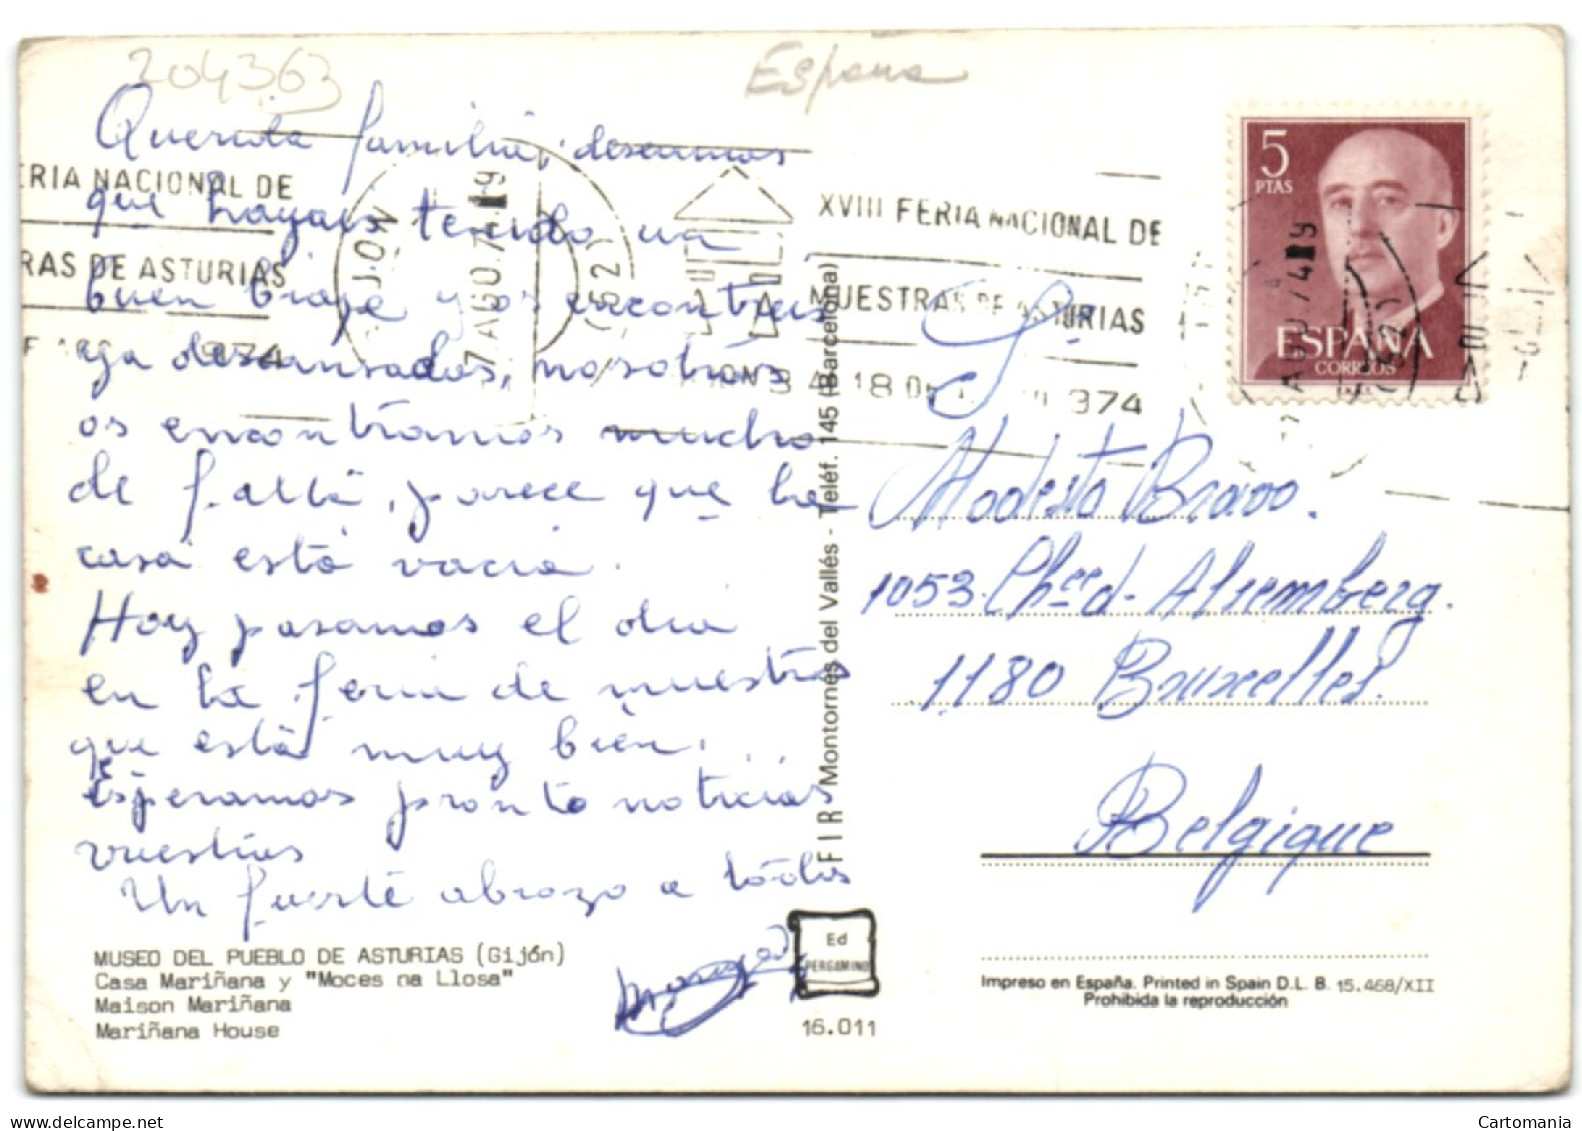 204363
España
Querida familia, deseamos
que hayais tenido un
buen biaje y os encontreis
ya descansados, nosotros
os encontramos mucho
de falta, parece que la
casa está vacia.
Hoy pasamos el dia
en la feria de muestras
que está muy bien.
Esperamos pronto noticias
vuestras
Un fuerte abrazo a todos
MUSEO DEL PUEBLO DE ASTURIAS (Gijón)
Casa Mariñana y "Moces na Llosa"
Maison Mariñana
Mariñana House
ERIA NACIONAL DE
RAS DE ASTURIAS
974
7 AGO 74
XVIII FERIA NACIONAL DE
MUESTRAS DE ASTURIAS
FIR - Montornés del Vallés - Teléf. 145 (Barcelona)
Ed
PERGAMINO
16.011
5
PTAS
ESPAÑA
CORREOS
Modesto Bravo.
1053. Chée d. Alsemberg.
1180 Bruxelles.
Belgique
Impreso en España. Printed in Spain D.L. B. 15.468/XII
Prohibida la reproducción
Cartomania